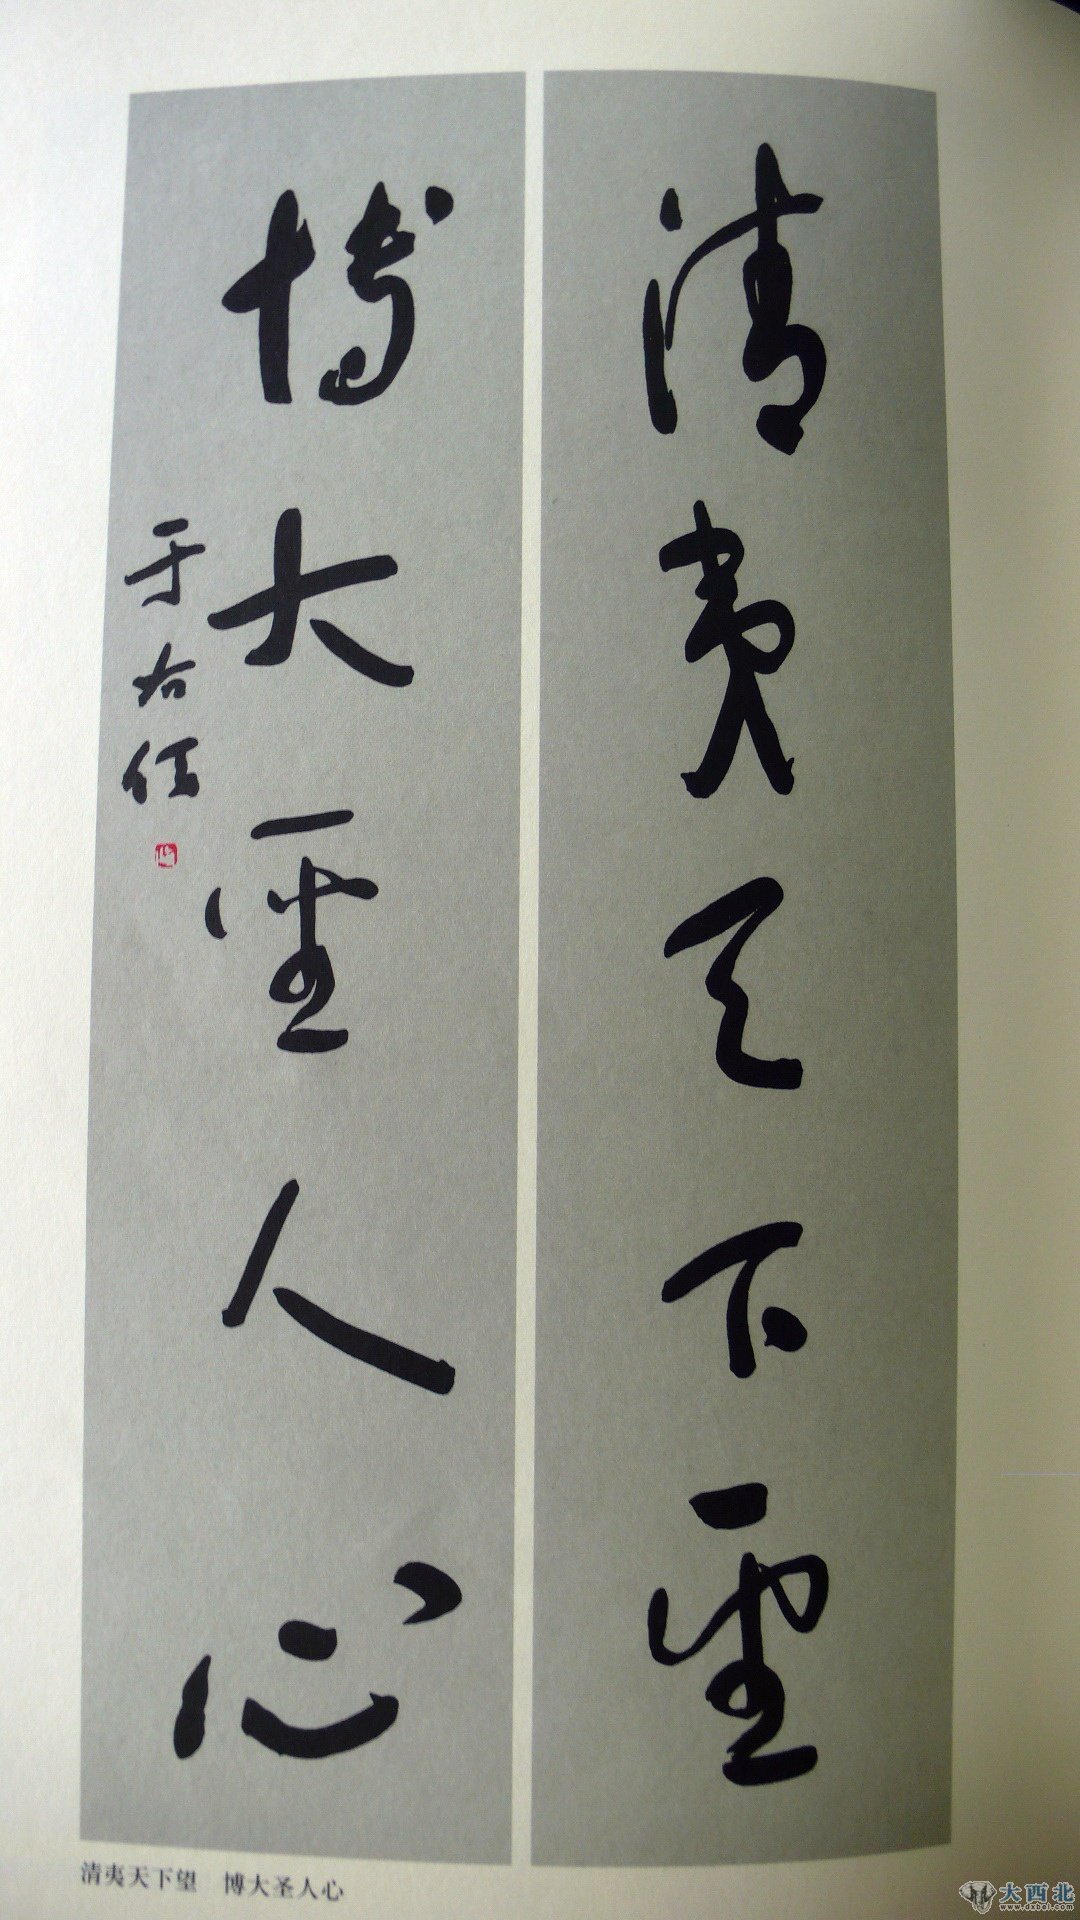 清夷天下望
博大聖人心
于右任
清夷天下望 博大圣人心
大西北
www.dxbei.com